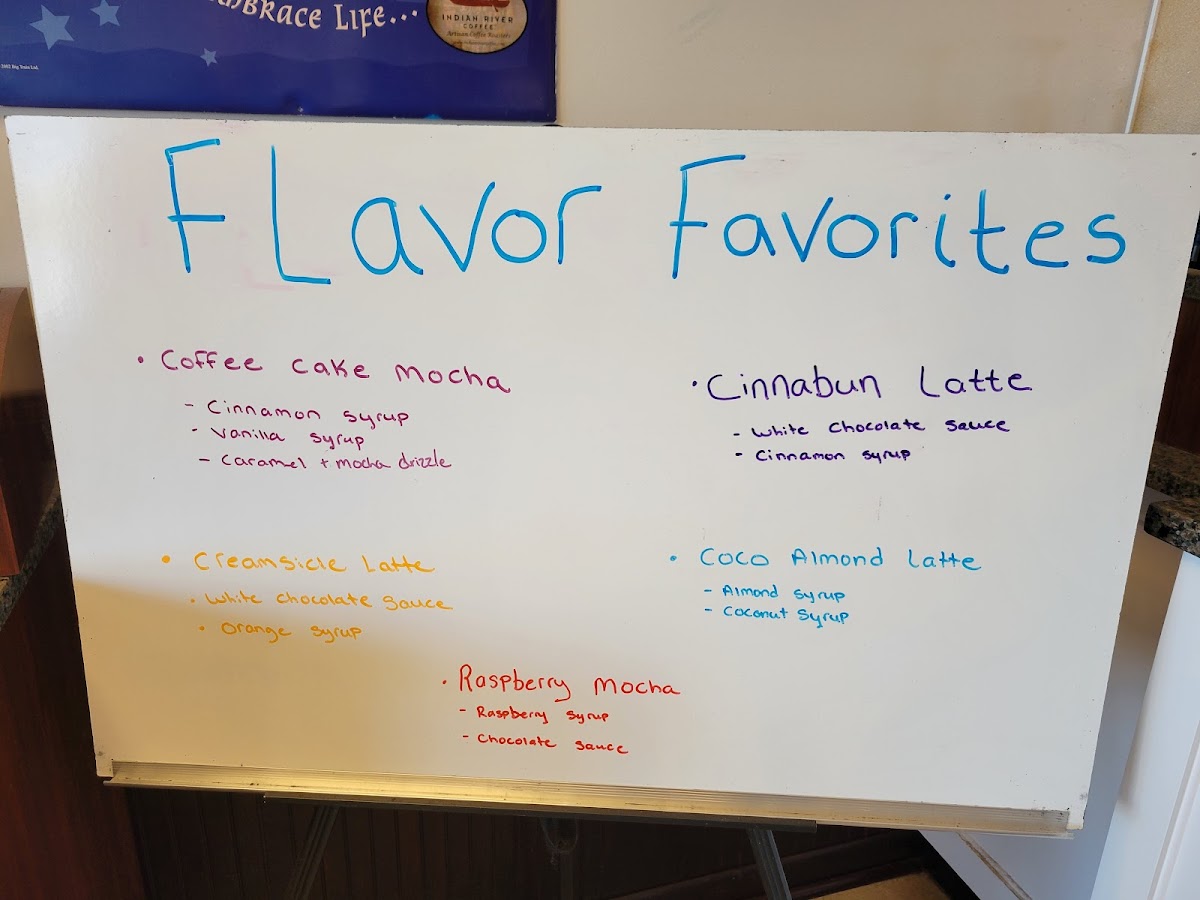 MBRACE LIFE...
INDIAN RIVER
COFFEE
Artisan Coffee Roasters
2002 Big Train Ltd.
FLavor Favorites
• Coffee cake mocha
- Cinnamon syrup
- Vanilla syrup
- Caramel + mocha drizzle
• Cinnabun Latte
- White chocolate sauce
- Cinnamon syrup
• Creamsicle Latte
• White chocolate sauce
• Orange syrup
• Coco Almond Latte
- Almond syrup
- Coconut syrup
• Raspberry Mocha
- Raspberry syrup
- Chocolate sauce